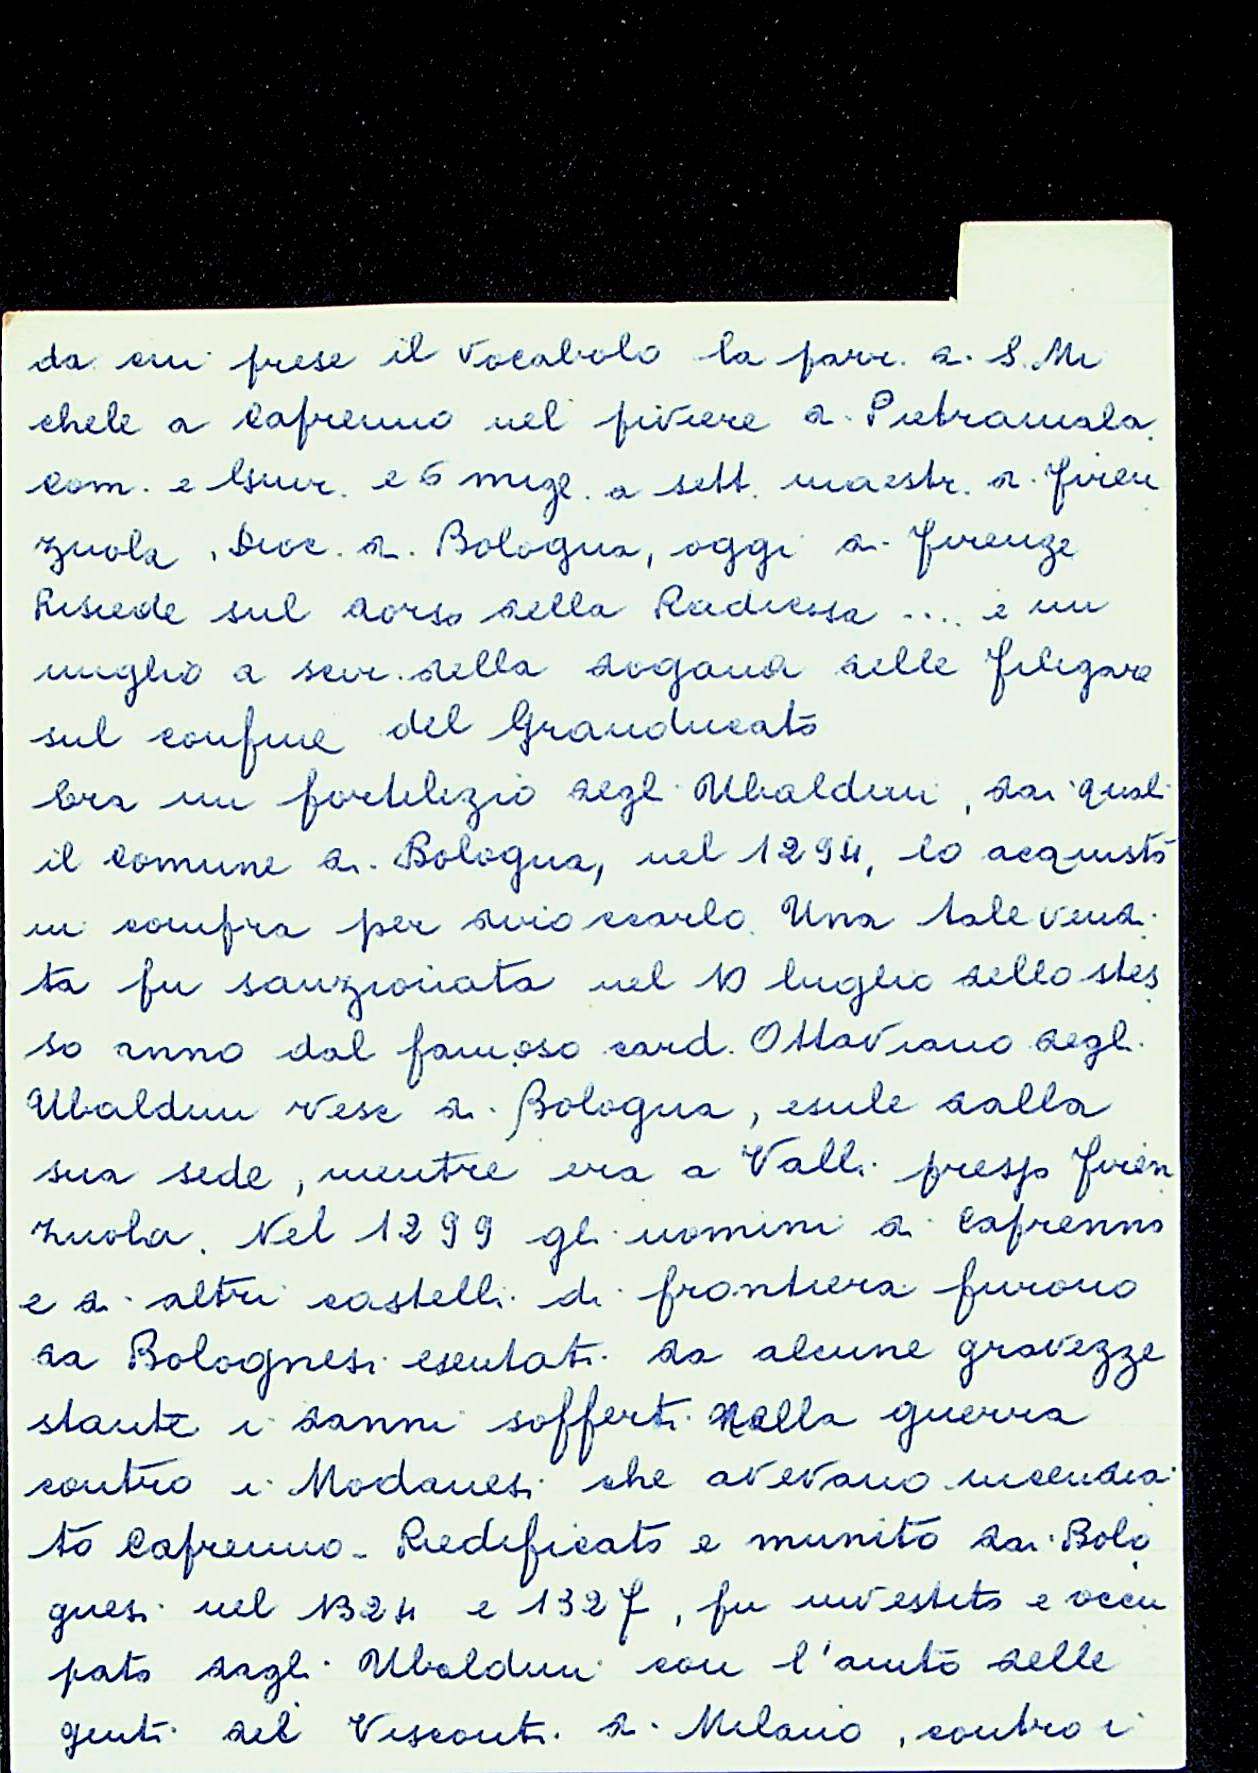 da cui prese il vocabolo la parr. di S. Mi
chele a Cafrenno nel piviere di Pietramala.
Com. e Giur. e 6 migl. a sett. maestr. di Firen
zuola, Dioc. di Bologna, oggi di Firenze
Risiede sul dorso della Radicosa .... è un
miglio a scir. della dogana delle Filigare
sul confine del Granducato
Era un fortilizio degli Ubaldini, dai quali
il comune di Bologna, nel 1294, lo acquistò
in compra per diroccarlo. Una tale vendi
ta fu sanzionata nel 10 luglio dello stes
so anno dal famoso card. Ottaviano degli
Ubaldini vesc di Bologna, esule dalla
sua sede, mentre era a Valli presso Firen
zuola. Nel 1299 gli uomini di Cafrenno
e di altri castelli di frontiera furono
da Bolognesi esentati da alcune gravezze
stante i danni sofferti nella guerra
contro i Modanesi che avevano incendia
to Cafrenno - Riedificato e munito dai Bolo
gnesi nel 1324 e 1327, fu investito e occu
pato dagli Ubaldini con l'aiuto delle
genti del Visconti di Milano, contro i